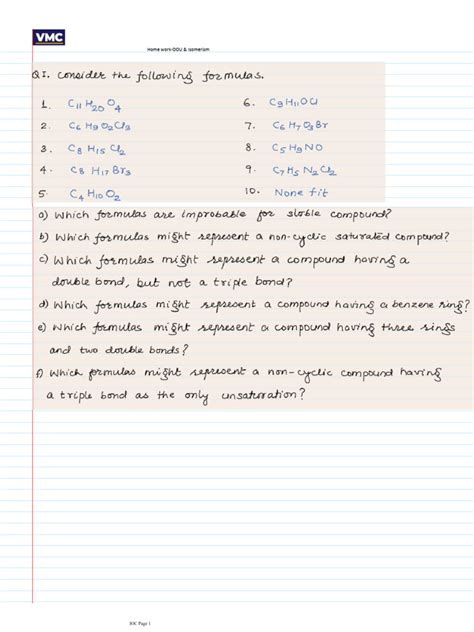 VMC
Home work-DOU & Isomerism
Q1. Consider the following formulas.
1. C₁₁H₂₀O₄
6. C₉H₁₁OCl
2. C₆H₉O₂Cl₃
7. C₆H₇O₃Br
3. C₈H₁₅Cl₂
8. C₅H₉NO
4. C₈H₁₇Br₃
9. C₇H₅N₂Cl₂
5. C₄H₁₀O₂
10. None fit
a) Which formulas are improbable for stable compound?
b) Which formulas might represent a non-cyclic saturated compound?
c) Which formulas might represent a compound having a
double bond, but not a triple bond?
d) Which formulas might represent a compound having a benzene ring?
e) Which formulas might represent a compound having three rings
and two double bonds?
f) Which formulas might represent a non-cyclic compound having
a triple bond as the only unsaturation?
IOC Page 1